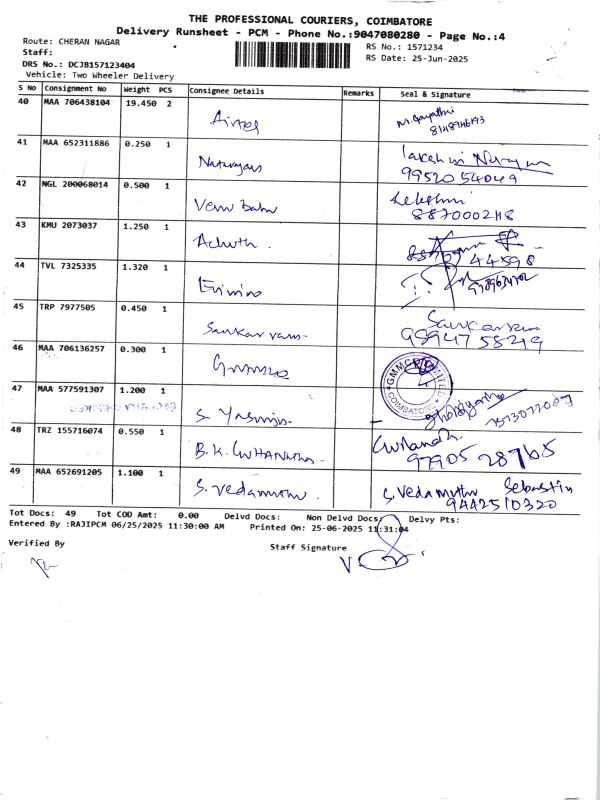 THE PROFESSIONAL COURIERS, COIMBATORE
Delivery Runsheet - PCM - Phone No.:9047080280 - Page No.:4
Route: CHERAN NAGAR RS No.: 1571234
Staff: RS Date: 25-Jun-2025
DRS No.: DCJB157123404
Vehicle: Two Wheeler Delivery
S No Consignment No Weight PCS Consignee Details Remarks Seal & Signature
40 MAA 706438104 19.450 2 Airtel
8148946193
41 MAA 652311886 0.250 1 Natarajan
9952054049
42 NGL 200068014 0.500 1 Venu Babu Lekshmi
8870002418
43 KMU 2073037 1.250 1 Achuth.
44598
44 TVL 7325335 1.320 1
45 TRP 7977505 0.450 1 Sankar ram. Sankarram
9894758249
46 MAA 706136257 0.300 1
GMMCO LIMITED
COIMBATORE
47 MAA 577591307 1.200 1 S. Yasmija.
48 TRZ 155716074 0.550 1 B.K.
97905 28765
49 MAA 652691205 1.100 1 S. Vedamuthu. S. Vedamuthu Sebastin
9442510320
Tot Docs: 49 Tot COD Amt: 0.00 Delvd Docs: Non Delvd Docs: Delvy Pts:
Entered By :RAJIPCM 06/25/2025 11:30:00 AM Printed On: 25-06-2025 11:31:04
Verified By Staff Signature